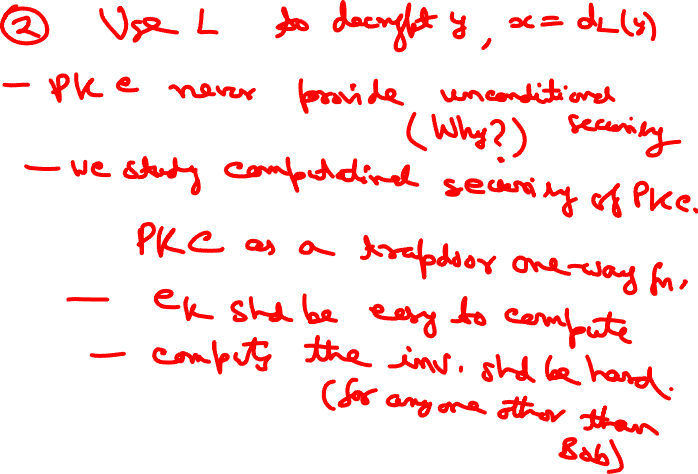 ② Use L to decrypt y, x = d_L(y)
- PKC never provide unconditional
(Why?) security
- we study computational security of PKC.
PKC as a trapdoor one-way fn.
- e_K shd be easy to compute
- computg the inv. shd be hard.
(for anyone other than
Bob)